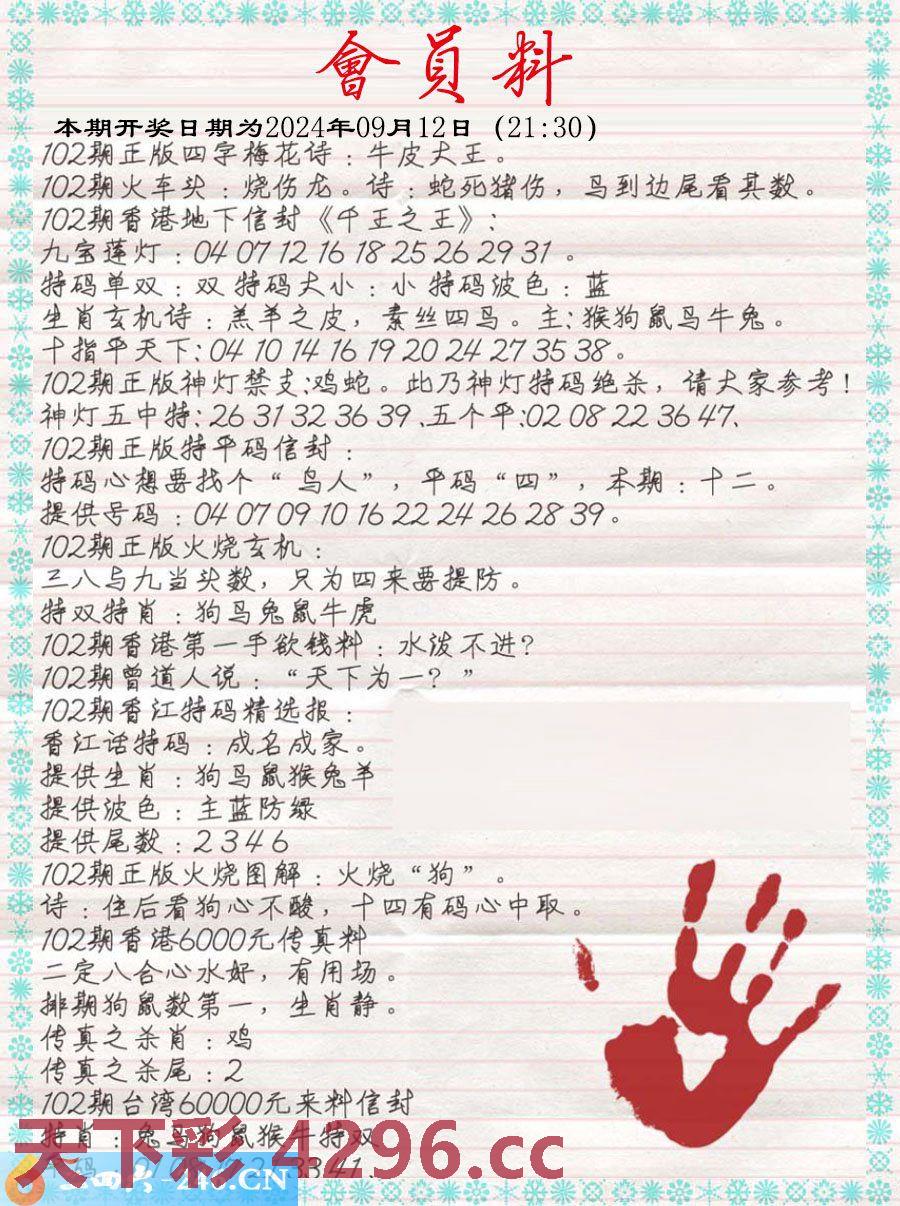 會員料
本期开奖日期为2024年09月12日（21:30）
102期正版四字梅花诗：牛皮大王。
102期火车头：烧伤龙。诗：蛇死猪伤，鸟到边尾看其数。
102期香港地下信封《千王之王》：
九宝莲灯：04 07 12 16 18 25 26 29 31 。
特码单双：双 特码大小：小 特码波色：蓝
生肖玄机诗：羔羊之皮，素丝四鸟。主：猴狗鼠鸟牛兔。
十指平天下：04 10 14 16 19 20 24 27 35 38。
102期正版神灯禁支：鸡蛇。此乃神灯特码绝杀，请大家参考！
神灯五中特：26 31 32 36 39 、五个平：02 08 22 36 47、
102期正版特平码信封：
特码心想要找个“鸟人”，平码“四”，本期：十二。
提供号码：04 07 09 10 16 22 24 26 28 39。
102期正版火烧玄机：
三八与九当头数，只为四来要提防。
特双特肖：狗鸟兔鼠牛虎
102期香港第一手欲钱料：水泼不进？
102期曾道人说：“天下为一？”
102期香江特码精选报：
香江话特码：成名成家。
提供生肖：狗鸟鼠猴兔羊
提供波色：主蓝防绿
提供尾数：2 3 4 6
102期正版火烧图解：火烧“狗”。
诗：住后看狗心不酸，十四有码心中取。
102期香港6000元传真料
二定八合心水好，有用场。
排期狗鼠数第一，生肖静。
传真之杀肖：鸡
传真之杀尾：2
102期台湾60000元来料信封
特肖：兔鸟狗鼠猴牛特双
天下彩4296.cc
33 41
246.CN